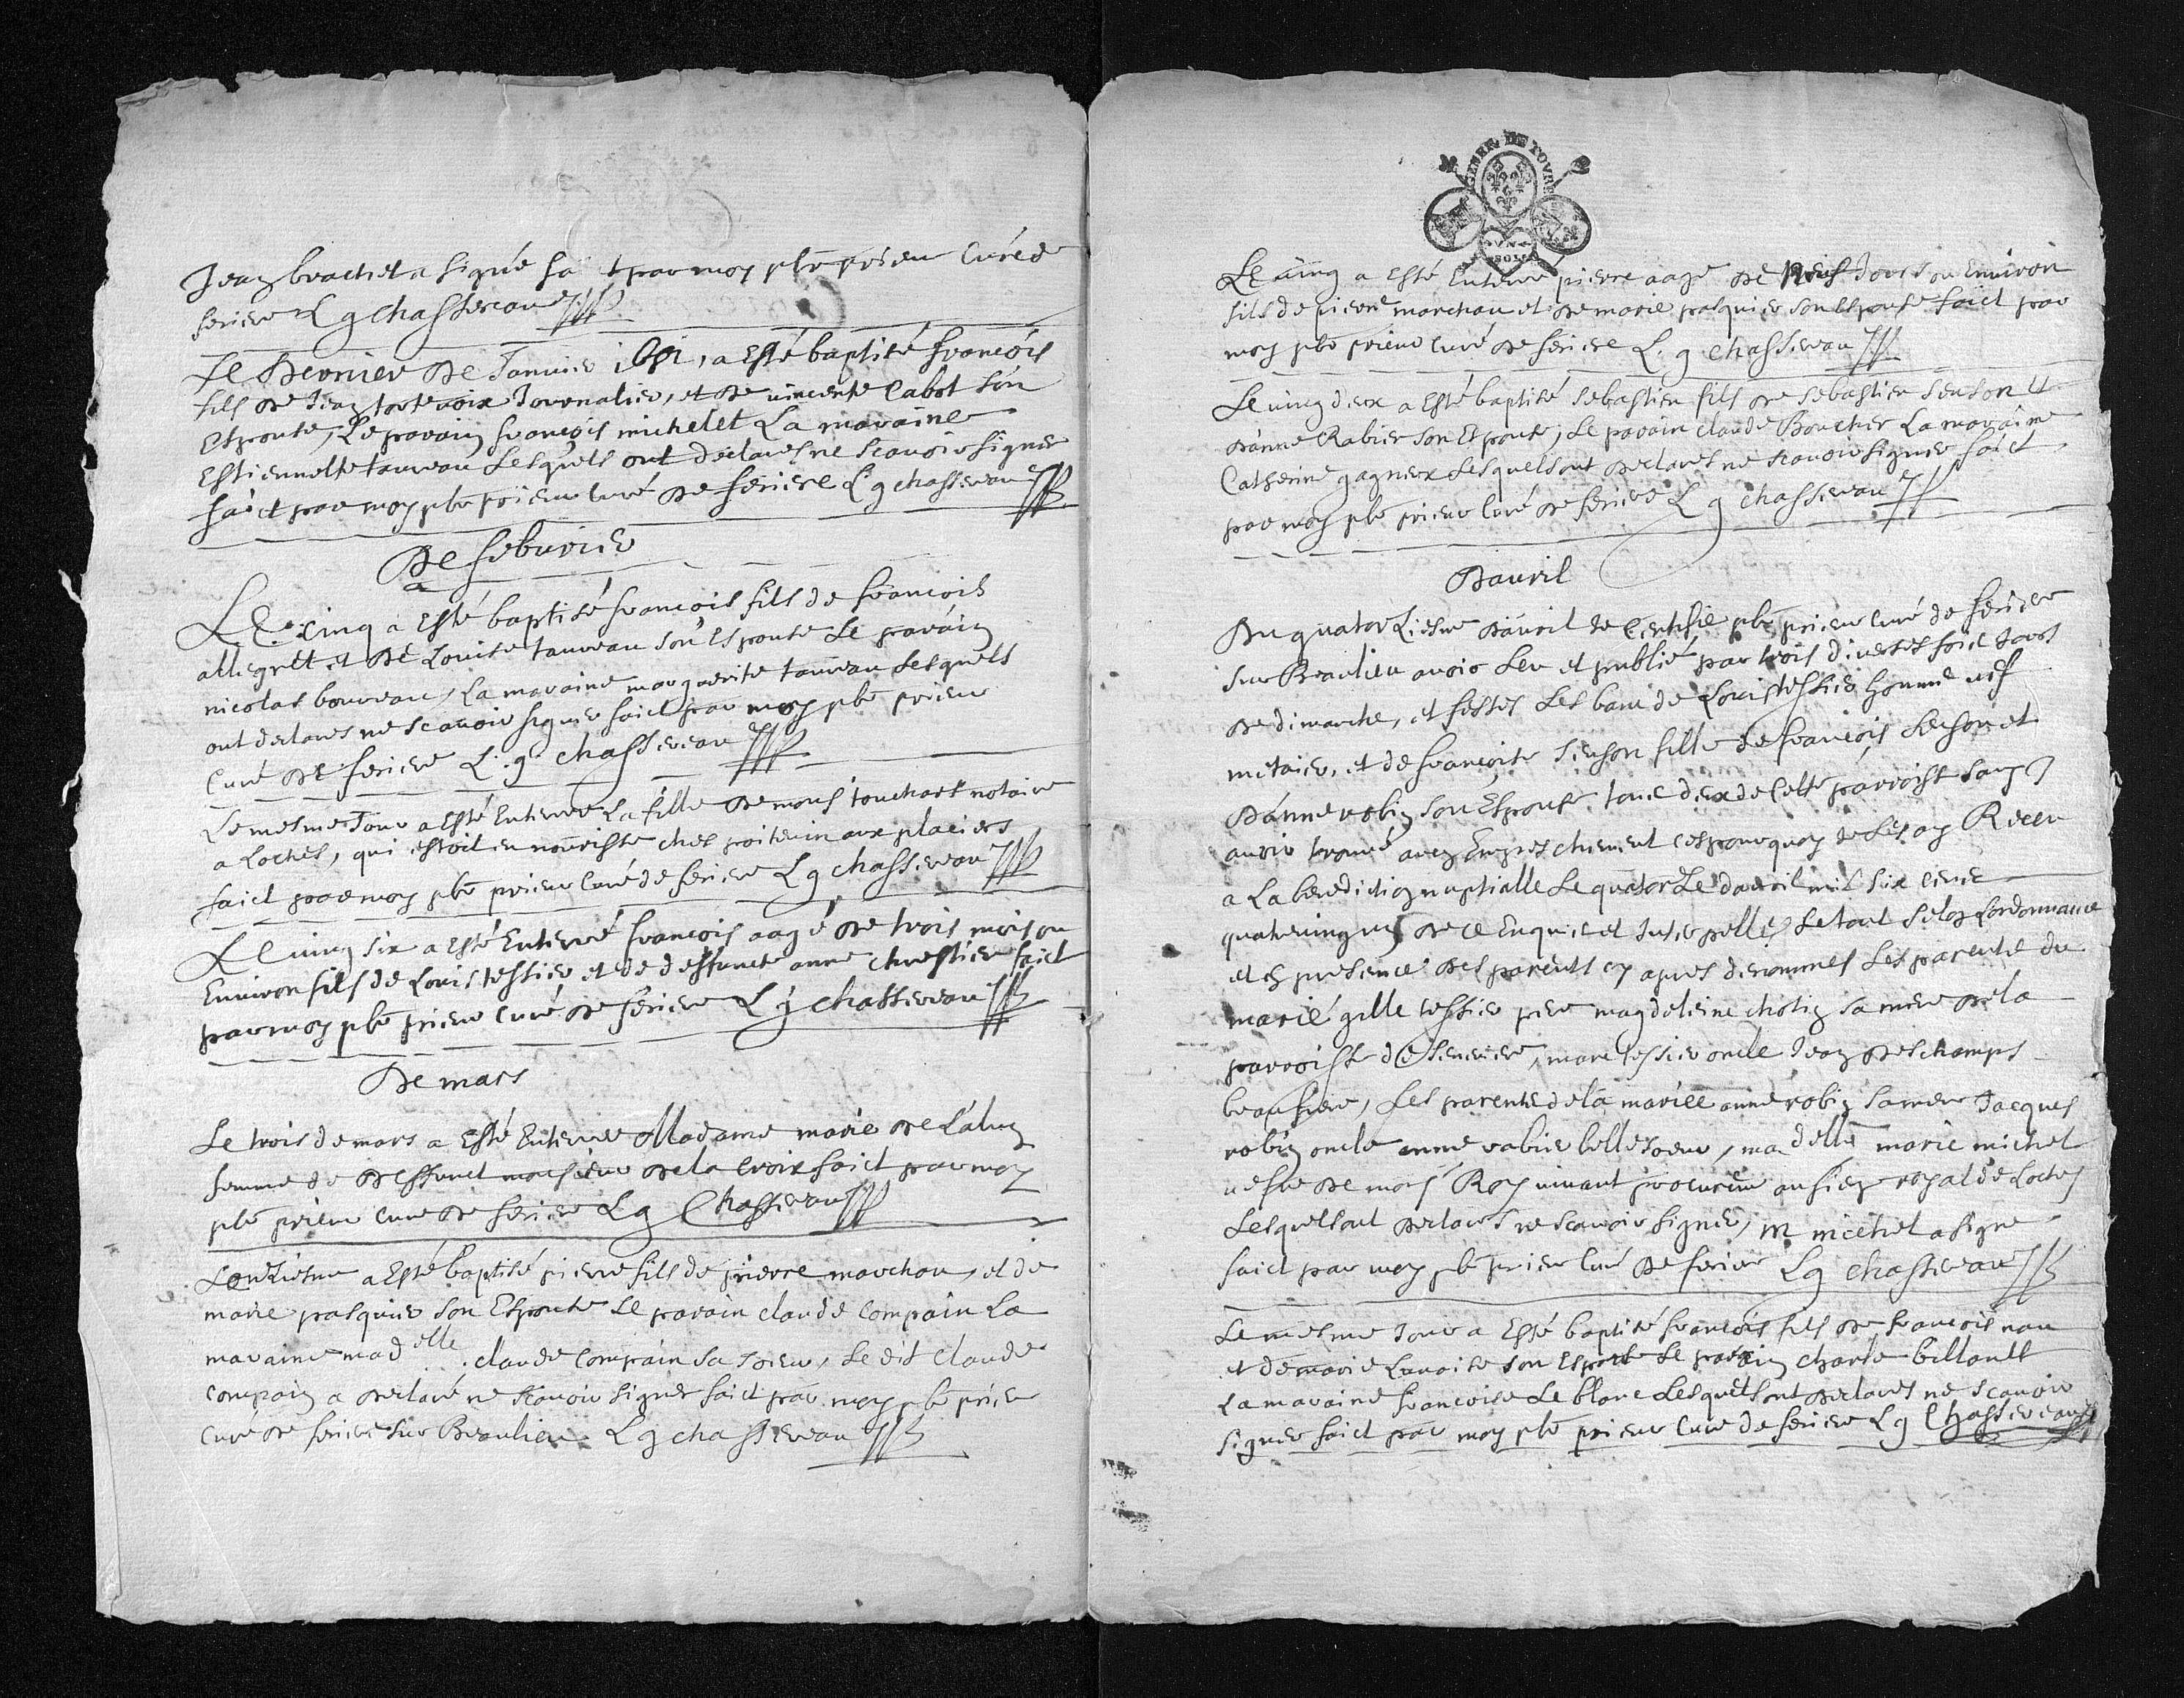 Jean brachet a signé faict par moy pbre prieur curé de
feriere L g chassereau
Le dernier de Janvier 1681, a Esté baptisé françois
fils de Jean tortevoix Journalier, et de vincente Cabot son
Espouse, Le parain françois michelet La maraine
Estiennette taureau Lesquels ont declares ne scavoir signer
faict par moy pbre prieur curé de feriere L g chassereau
De feburier
Le cinq a Esté baptisé françois fils de françois
allegret et de Louise taureau son Espouse Le parain
nicolas boureau, La maraine marguerite taureau Lesquels
ont declares ne scavoir signer faict par moy pbre prieur
Curé de feriere L. g. chassereau
Le mesme Jour a Esté Enterree La fille de mons touchart notaire
a Loches, qui estoit en nourisse ches poitevin aux placiers
faict par moy pbre prieur curé de feriere L g chassereau
Le vinq six a Esté Enterré françois aagé de trois mois ou
Environ fils de Louis tessier, et de deffuncte anne chrestien faict
par moy pbre prieur curé de feriere L g chassereau
De mars
Le trois de mars a Esté Enterree Madame marie de
femme de deffunct monsieur de la croix faict par moy
pbre prieur curé de feriere L g Chassereau
Lonziesme a Esté baptisé pierre fils de pierre marchau, et de
marie pasquier son Espouse Le parain claude compain La
maraine madelle claude compain sa soeur, Le dit Claude
compain a declaré ne scavoir signer faict par moy pbre prieur
curé de feriere sur Beaulieu L g chassereau
GENER. DE TOVRS
Le vinq a Esté Enterré pierre aagé de neuf Jours ou Environ
fils de pierre marchau et de marie pasquier son Espouse faict par
moy pbre prieur curé de feriere L. g chassereau
Le vinq deux a Esté baptisé sebastien fils de sebastien senson et
d'anne Rabier son Espouse, Le parain claude Boucher La maraine
Catherine gagneux Lesquels ont declares ne scavoir signer faict
par moy pbre prieur curé de feriere L g chassereau
D'auril
Du quatorziesme d'auril Je Certifie pbre prieur curé de feriere
sur Beaulieu avoir Leu et publié par trois diverses fois Jours
de dimanche, et festes Les bans de Louis tessier homme vef
metaier, et de françoise senson fille de françois senson et
d'anne robin son Espouse tous deux de cette parroisse sans J
avoir trouvé aucun Empeschement cespourquoy Je Les ay Receu
a La benediction nuptialle Le quatorze d'auril mil six cens
quatrevingt un de ce Enquis et Interpelles Le tout selon Lordonnance
et en presence des parents cy apres denommes Les parents du
marié gille tessier pere magdeleine chotin sa mere de la
parroisse de, marc tessier oncle Jean deschamps
beau frere, Les parents de la mariée anne robin sa mere Jacques
robin oncle anne rabier belle soeur, madelle marie michel
vefve de mons Roy vivant procureur au siege royal de Loches
Lesquels ont declares ne scavoir signer, m michel a signé
faict par moy pbre prieur curé de feriere L g chassereau
Le mesme Jour a Esté baptisé françois fils de françois nau
et de marie Lavoise son Espouse Le parain charle billault
La maraine françoise Le blanc Lesquels ont declares ne scavoir
signer faict par moy pbre prieur curé de feriere L g Chassereau